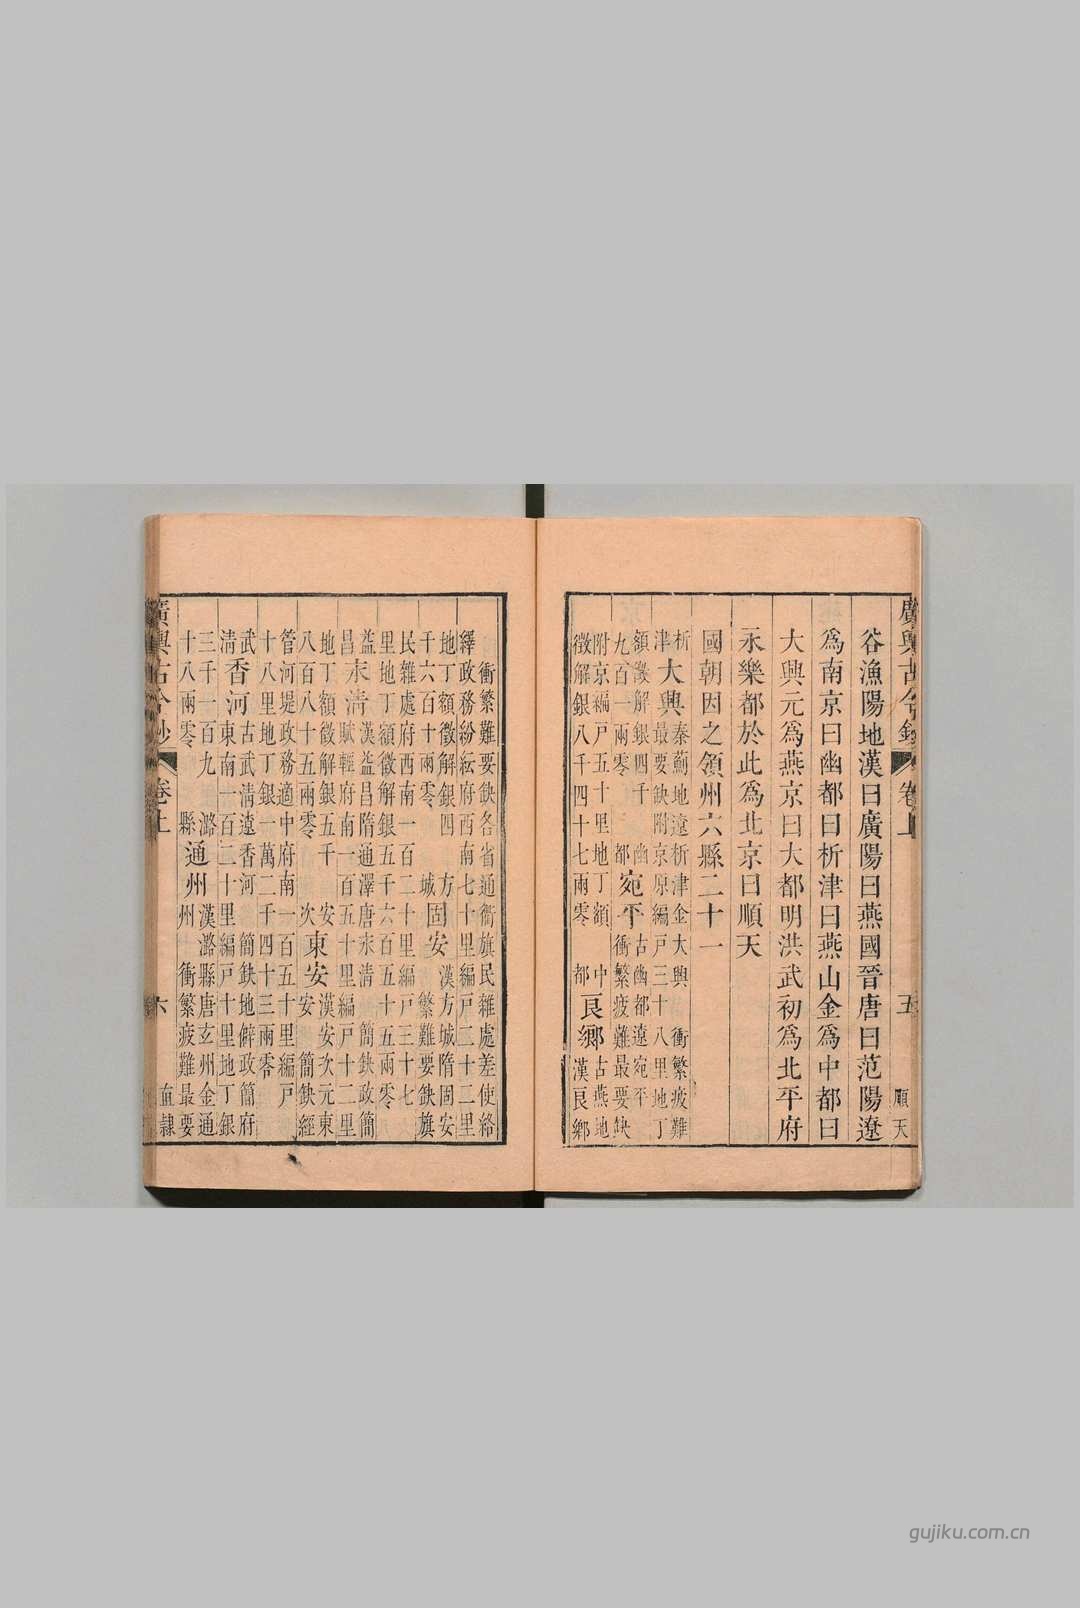 廣輿古今鈔 卷上 五 順天
谷漁陽地漢曰廣陽曰燕國晉唐曰范陽遼
爲南京曰幽都曰析津曰燕山金爲中都曰
大興元爲燕京曰大都明洪武初爲北平府
永樂都於此爲北京曰順天
國朝因之領州六縣二十一
析津 大興 秦薊地遼析津金大興 衝繁疲難
最要缺附京原編戶三十八里地丁
額徵解銀四千
九百一兩零 都 宛平 古幽都遼宛平
衝繁疲難最要缺
附京編戶五十里地丁額
徵解銀八千四十七兩零 中都 良鄉 古燕地
漢良鄉
衝繁難要缺各省通衢旗民雜處差使絡
繹政務紛紜府西南七十里編戶二十二里
地丁額徵解銀四
千六百十兩零 方城 固安 漢方城隋固安
繁難要缺旗
民雜處府西南一百二十里編戶三十七
里地丁額徵解銀五千六百五十五兩零
益昌 永清 漢益昌隋通澤唐永清 簡缺政簡
賦輕府南一百五十里編戶十二里
地丁額徵解銀五千
八百八十五兩零 安次 東安 漢安次元東
安 簡缺經
管河堤政務適中府南一百五十里編戶
十八里地丁銀一萬二千四十三兩零
武清 香河 古武清遼香河 簡缺地僻政簡府
東南一百二十里編戶十里地丁銀
三千一百九
十八兩零 潞縣 通州 漢潞縣唐玄州金通
州 衝繁疲難最要
廣輿古今鈔 卷上 六 直隸
gujiku.com.cn